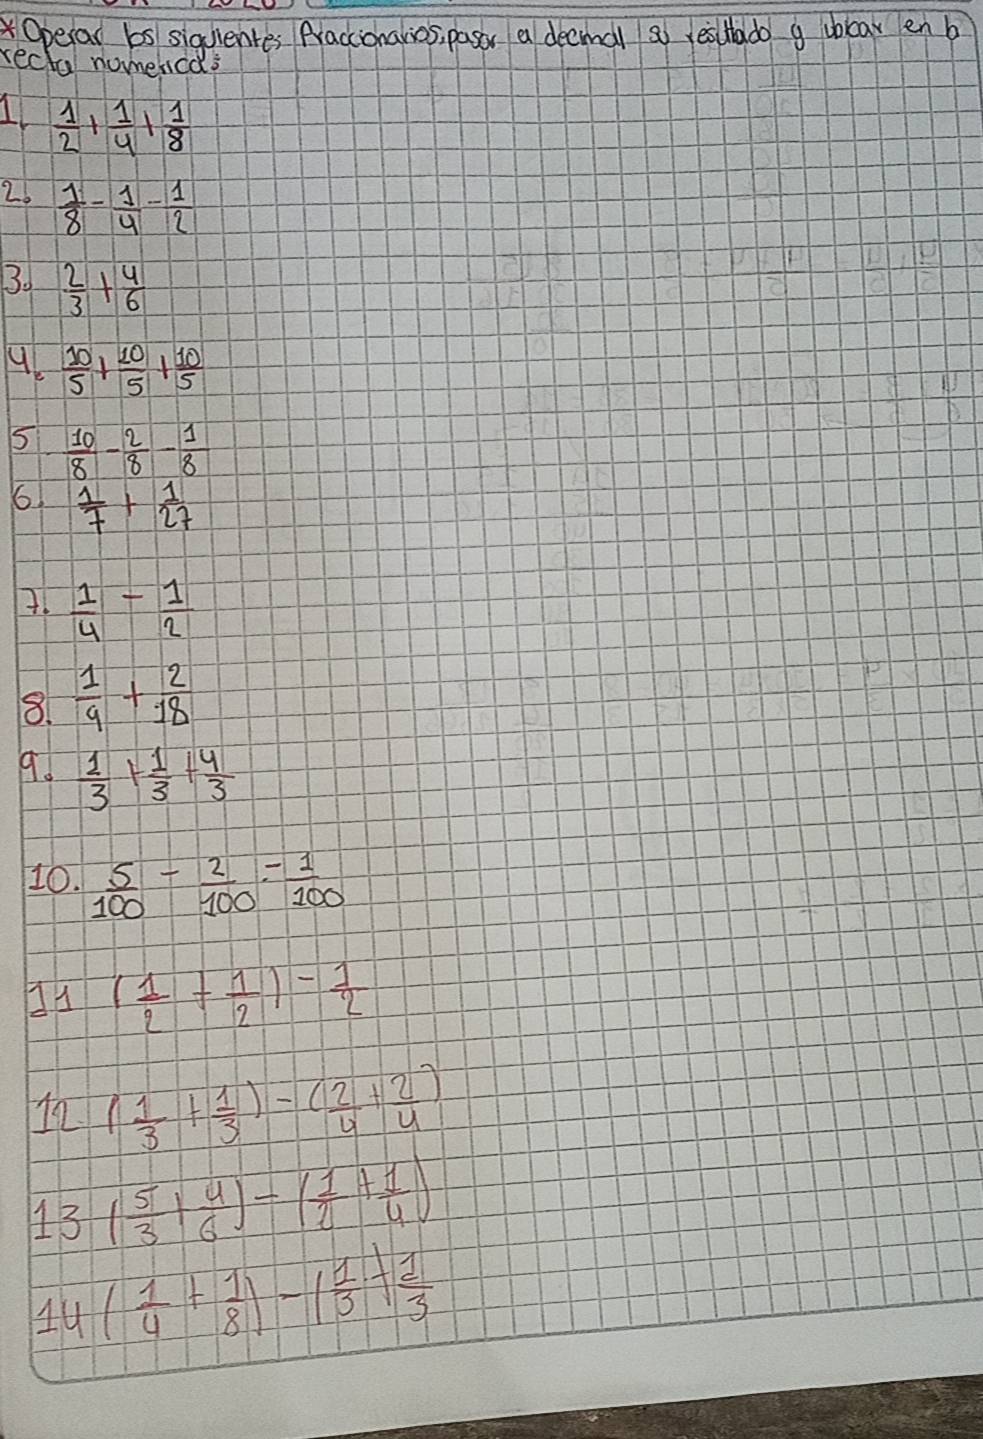 * Operar los siguientes fraccionarios, pasar a decimal el resultado y ubicar en la
recta numerica:
1. 1/2 + 1/4 + 1/8
2. 1/8 - 1/4 - 1/2
3. 2/3 + 4/6
4. 10/5 + 10/5 + 10/5
5 10/8 - 2/8 - 1/8
6. 1/7 + 1/27
7. 1/4 - 1/2
8. 1/9 + 2/18
9. 1/3 + 1/3 + 4/3
10. 5/100 - 2/100 - 1/100
11 (1/2 + 1/2) - 1/2
12 (1/3 + 1/3) - (2/4 + 2/4)
13 (5/3 + 4/6) - (1/2 + 1/4)
14 (1/4 + 1/8) - (1/3 + 1/3